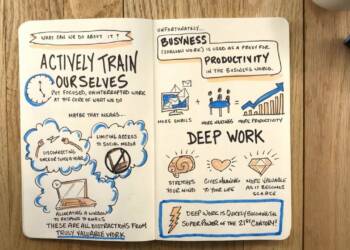 WHAT CAN WE DO ABOUT IT?
ACTIVELY TRAIN
OURSELVES
PUT FOCUSED, UNINTERRUPTED WORK
AT THE CORE OF WHAT WE DO
MAYBE THAT MEANS...
DISCONNECTING
ONCE OR TWICE A YEAR
LIMITING ACCESS
TO SOCIAL MEDIA
ALLOCATING A WINDOW
TO RESPOND TO EMAILS
THESE ARE ALL DISTRACTIONS FROM
TRULY VALUABLE WORK
UNFORTUNATELY...
BUSYNESS
(SHALLOW WORK) IS USED AS A PROXY FOR
PRODUCTIVITY
IN THE BUSINESS WORLD.
MORE EMAILS
MORE MEETINGS
MORE PRODUCTIVITY
DEEP WORK
STRETCHES
YOUR MIND
GIVES MEANING
TO YOUR LIFE
MORE VALUABLE
AS IT BECOMES
SCARCE
DEEP WORK IS QUICKLY BECOMING THE
SUPER POWER OF THE 21ST CENTURY!